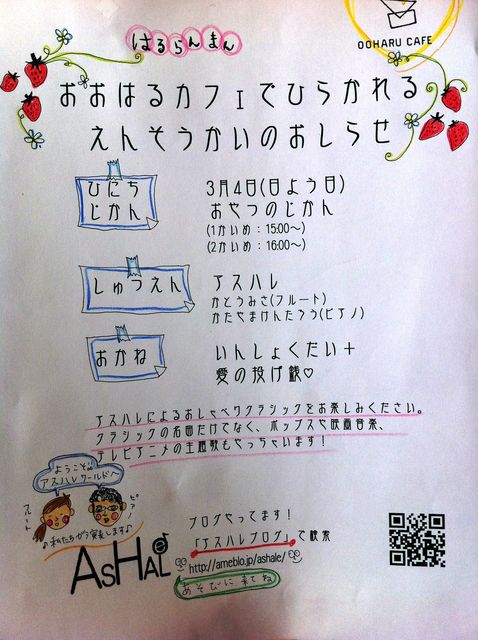 OOHARU CAFE
はるらんまん
おおはるカフェでひらかれる
えんそうかいのおしらせ
ひにち
じかん
3月4日(日よう日)
おやつのじかん
(1かいめ:15:00〜)
(2かいめ:16:00〜)
しゅつえん
アスハレ
かとうみさ(フルート)
かたやまけんたろう(ピアノ)
おかね
いんしょくだい+
愛の投げ銭♡
アスハレによるおしゃべりクラシックをお楽しみください。
クラシックの名曲だけでなく、ポップスや映画音楽、
テレビアニメの主題歌もやっちゃいます!
ようこそ
アスハレワールドへ
フルート
ピアノ
♪私たちが演奏します♪
ASHALE
ブログやってます!
「アスハレブログ」で検索
http://ameblo.jp/ashale/
あそびに来てね